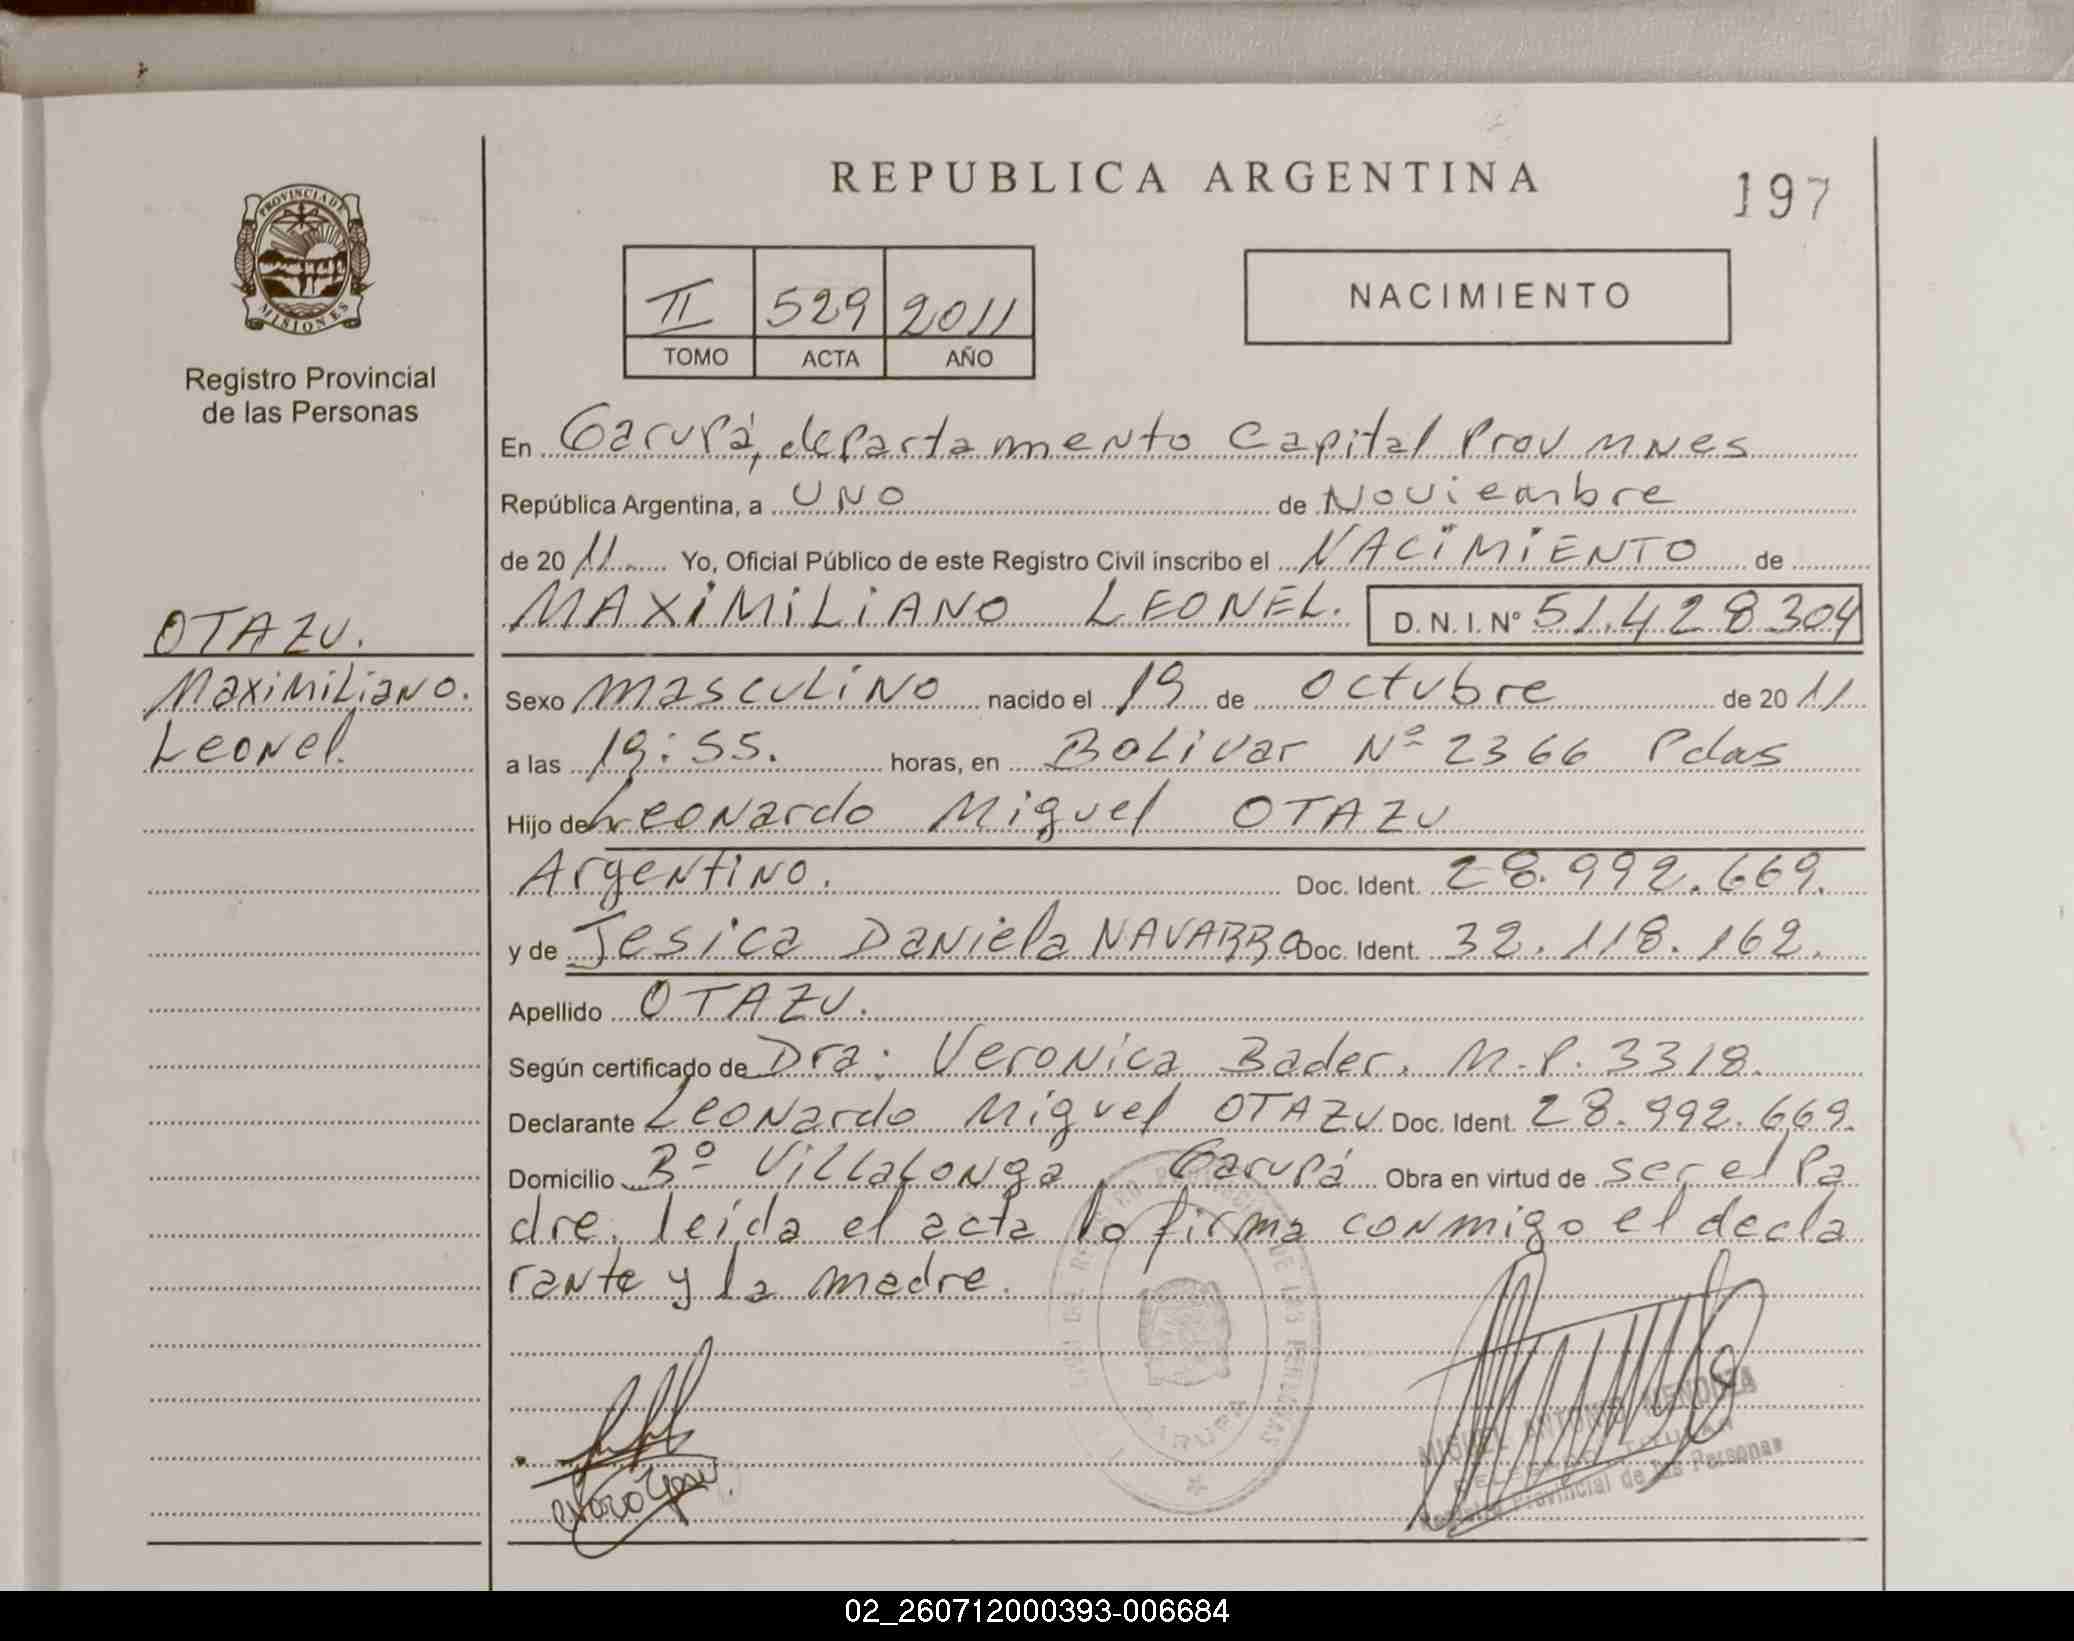 REPUBLICA ARGENTINA
197
PROVINCIA DE
MISIONES
Registro Provincial
de las Personas
II 529 2011
TOMO ACTA AÑO
NACIMIENTO
En Garupá, departamento Capital Prov Mnes
República Argentina, a UNO de Noviembre
de 20 11 Yo, Oficial Público de este Registro Civil inscribo el NACIMIENTO de
MAXIMILIANO LEONEL. D.N.I.Nº 51.428304
OTAZU.
Maximiliano.
Leonel.
Sexo Masculino nacido el 19 de Octubre de 20 11
a las 19:55. horas, en Bolivar Nº 2366 Pdas
Hijo de Leonardo Miguel OTAZU
Argentino. Doc. Ident. 28.992.669.
y de Jesica Daniela NAVARRO Doc. Ident. 32.118.162.
Apellido OTAZU.
Según certificado de Dra: Veronica Bader. M.P. 3318.
Declarante Leonardo Miguel OTAZU Doc. Ident. 28.992.669.
Domicilio Bº Villalonga Garupá Obra en virtud de ser el Pa
dre. leída el acta lo firma conmigo el decla
rante y la madre.
MIGUEL ANTONIO MENDOZA
DELEGADO TITULAR
Registro Provincial de las Personas
02_260712000393-006684